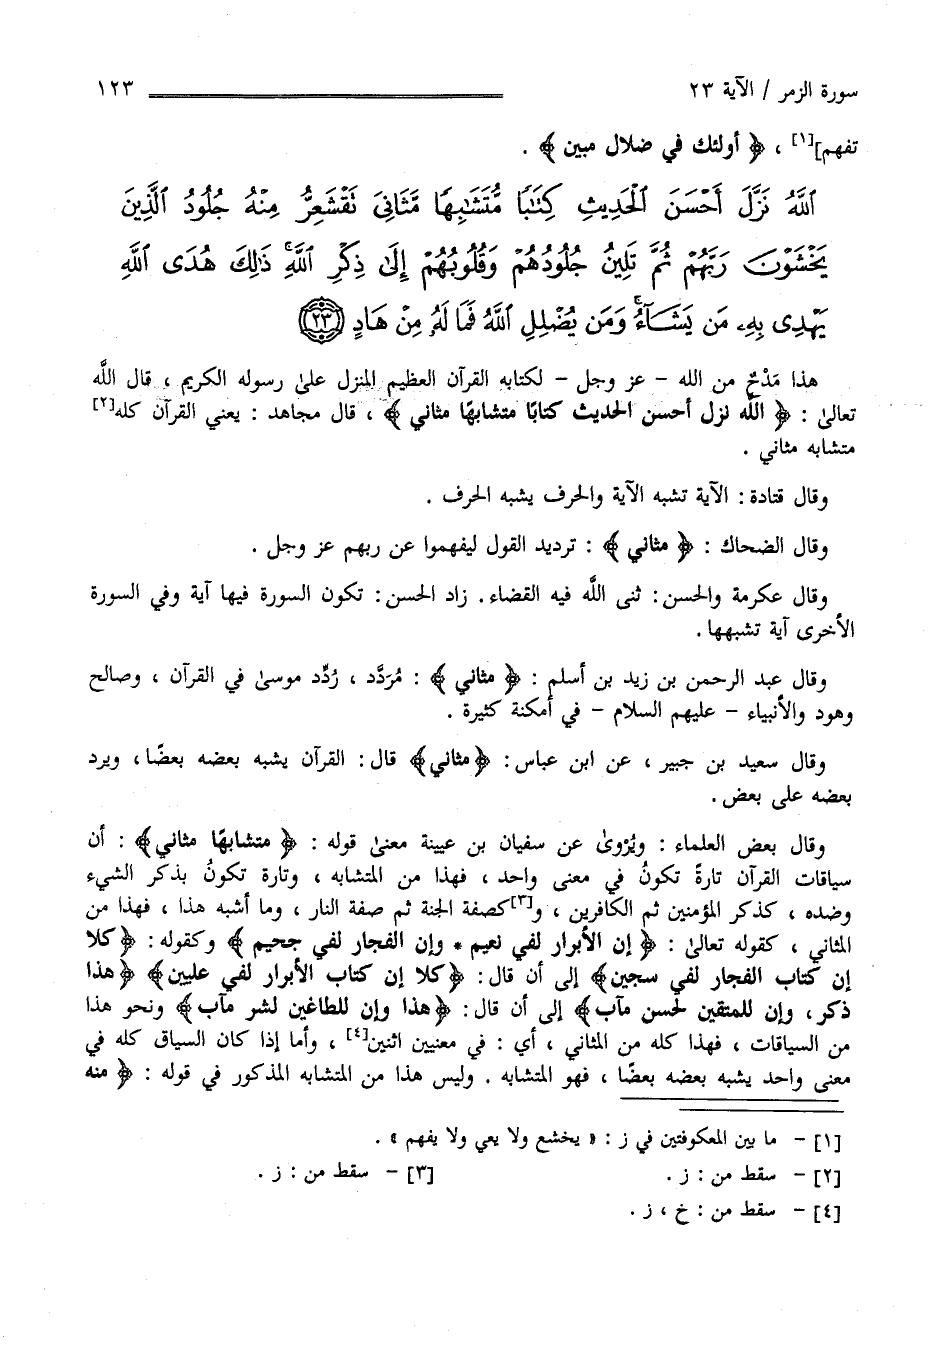 سورة الزمر / الآية ٢٣ ١٢٣
تفهم][١] ، ﴿ أولئك في ضلال مبين ﴾ .
ٱللَّهُ نَزَّلَ أَحۡسَنَ ٱلۡحَدِيثِ كِتَٰبٗا مُّتَشَٰبِهٗا مَّثَانِيَ تَقۡشَعِرُّ مِنۡهُ جُلُودُ ٱلَّذِينَ
يَخۡشَوۡنَ رَبَّهُمۡ ثُمَّ تَلِينُ جُلُودُهُمۡ وَقُلُوبُهُمۡ إِلَىٰ ذِكۡرِ ٱللَّهِۚ ذَٰلِكَ هُدَى ٱللَّهِ
يَهۡدِي بِهِۦ مَن يَشَآءُۚ وَمَن يُضۡلِلِ ٱللَّهُ فَمَا لَهُۥ مِنۡ هَادٍ ٢٣
هذا مَدْحٌ من الله – عز وجل – لكتابه القرآن العظيم المنزل علىٰ رسوله الكريم ، قال اللَّه
تعالىٰ : ﴿ اللَّه نزل أحسن الحديث كتابًا متشابهًا مثاني ﴾ ، قال مجاهد : يعني القرآن كله[٢]
متشابه مثاني .
وقال قتادة : الآية تشبه الآية والحرف يشبه الحرف .
وقال الضحاك : ﴿ مثاني ﴾ : ترديد القول ليفهموا عن ربهم عز وجل .
وقال عكرمة والحسن : ثنى اللَّه فيه القضاء . زاد الحسن : تكون السورة فيها آية وفي السورة
الأخرى آية تشبهها .
وقال عبد الرحمن بن زيد بن أسلم : ﴿ مثاني ﴾ : مُرَدَّد ، رُدِّد موسىٰ في القرآن ، وصالح
وهود والأنبياء – عليهم السلام – في أمكنة كثيرة .
وقال سعيد بن جبير ، عن ابن عباس : ﴿مثاني﴾ قال : القرآن يشبه بعضه بعضًا ، ويرد
بعضه على بعض .
وقال بعض العلماء : ويُرْوىٰ عن سفيان بن عيينة معنىٰ قوله : ﴿ متشابهًا مثاني﴾ : أن
سياقات القرآن تارةً تكونُ في معنى واحد ، فهذا من المتشابه ، وتارة تكونُ بذكر الشيء
وضده ، كذكر المؤمنين ثم الكافرين ، و[٣]كصفة الجنة ثم صفة النار ، وما أشبه هذا ، فهذا من
المثاني ، كقوله تعالىٰ : ﴿ إن الأبرار لفي نعيم * وإن الفجار لفي جحيم ﴾ وكقوله : ﴿كلا
إن كتاب الفجار لفي سجين﴾ إلى أن قال : ﴿كلا إن كتاب الأبرار لفي عليين﴾ ﴿هذا
ذكر ، وإن للمتقين لحسن مآب﴾ إلى أن قال : ﴿هذا وإن للطاغين لشر مآب﴾ ونحو هذا
من السياقات ، فهذا كله من المثاني ، أي : في معنيين اثنين[٤] ، وأما إذا كان السياق كله في
معنى واحد يشبه بعضه بعضًا ، فهو المتشابه . وليس هذا من المتشابه المذكور في قوله : ﴿ منه
[١] – ما بين المعكوفتين في ز : « يخشع ولا يعي ولا يفهم » .
[٢] – سقط من : ز . [٣] – سقط من : ز .
[٤] – سقط من : خ ، ز .